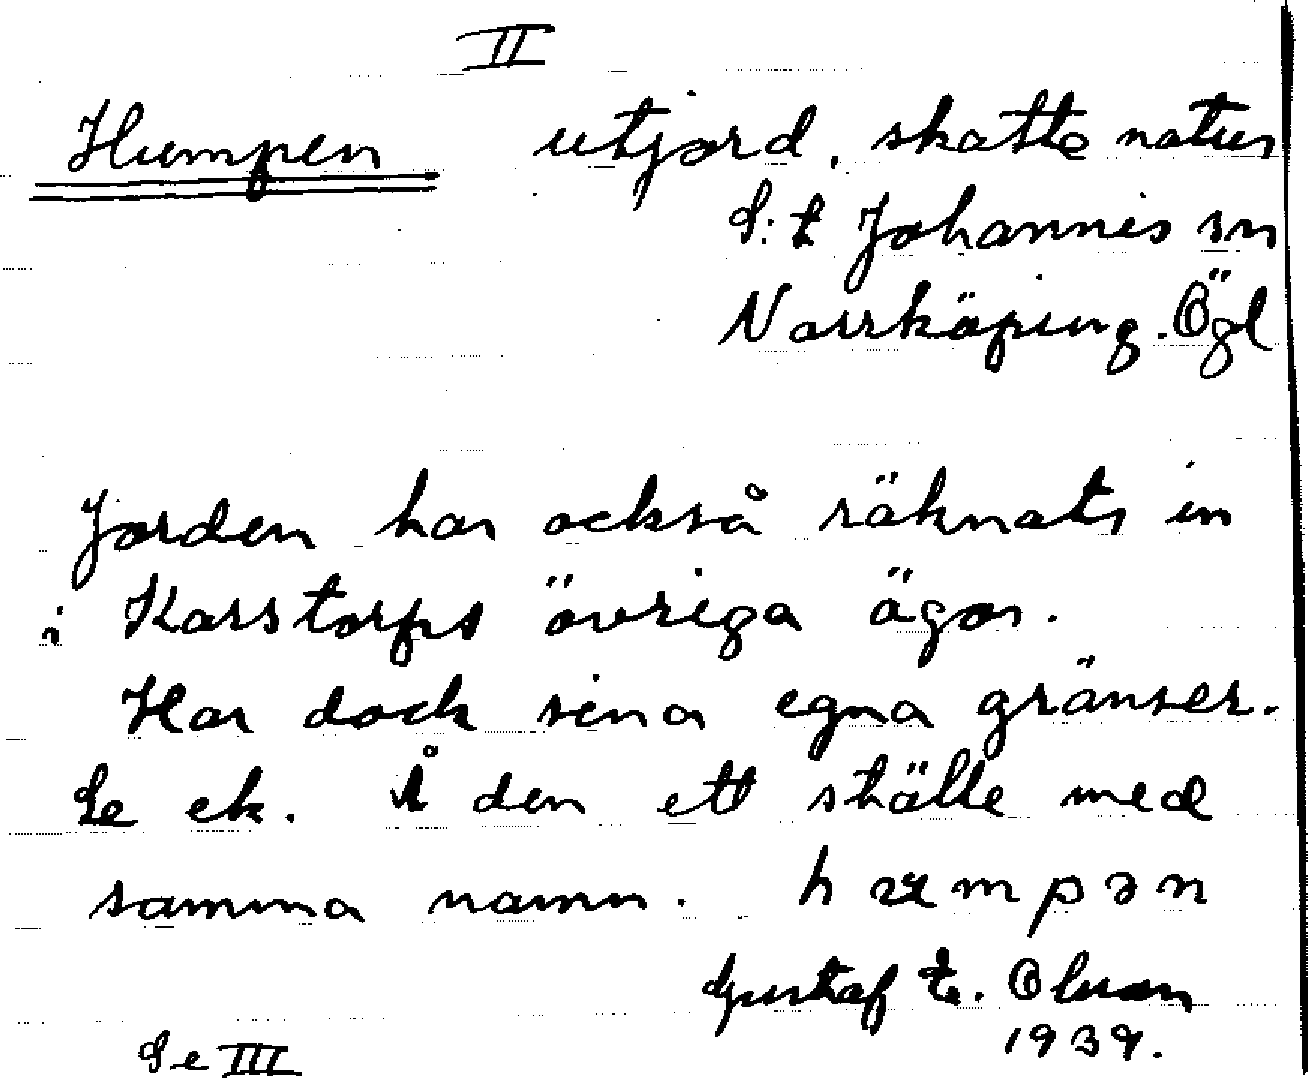 II
Humpen utjord, skatte natur
S:t Johannis sn
Norrköping. Ögl
Jorden har också räknats in
i Karstorps övriga ägor.
Har dock sina egna gränser.
Se ek. Å den ett ställe med
samma namn.
Gustaf E. Olsson
1939.
Se III